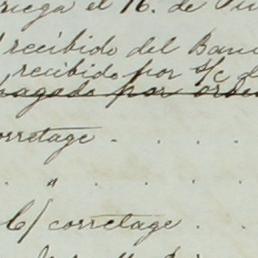 el 16. de
recibido del Banc
recibido por S/C d
pagado por orden
orretage - . . .
. " . . .
C/ corretage . .